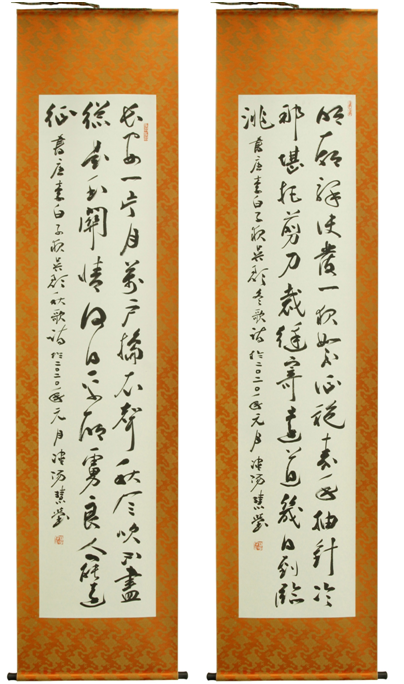 長安一片月萬戶擣衣聲秋風吹不盡
總是玉關情何日平胡虜良人罷遠
征
書唐李白子夜吳歌秋歌詩於二〇二〇年元月
明朝驛使發一夜絮征袍素手抽針冷
那堪把剪刀裁縫寄遠道幾日到臨
洮
書唐李白子夜吳歌冬歌詩於二〇二〇年元月